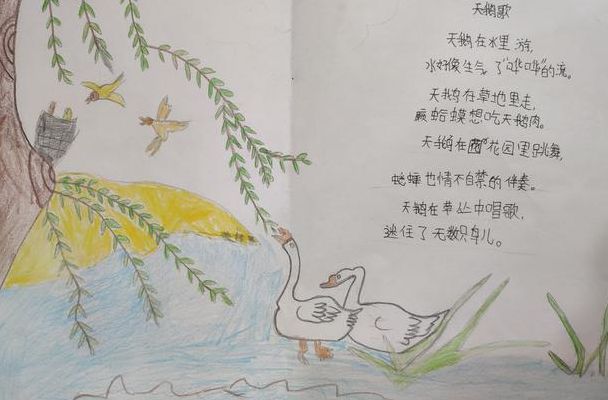 天鹅歌
天鹅在水里游,
水好像生气了"哗哗"的流。
天鹅在草地里走,
癞蛤蟆想吃天鹅肉。
天鹅在花园里跳舞,
蟋蟀也情不自禁的伴奏。
天鹅在草丛中唱歌,
迷住了无数只鸟儿。